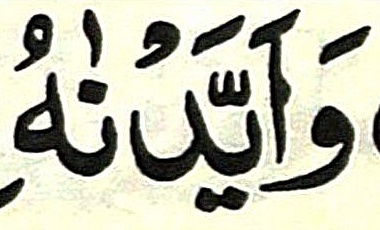 وَاَيَّدْنٰهُ